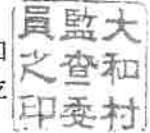 大和村
監査委
員之印